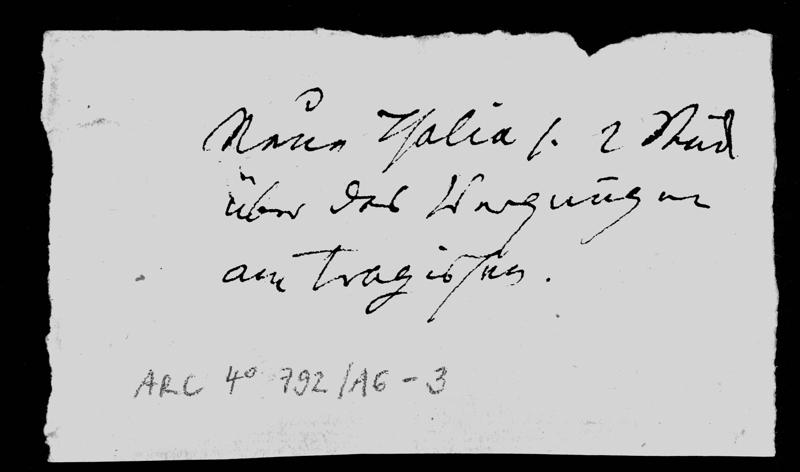 Neue Thalia 1. 2 Stück
über das Vergnügen
am tragischen.
ARC 4° 792/A6-3